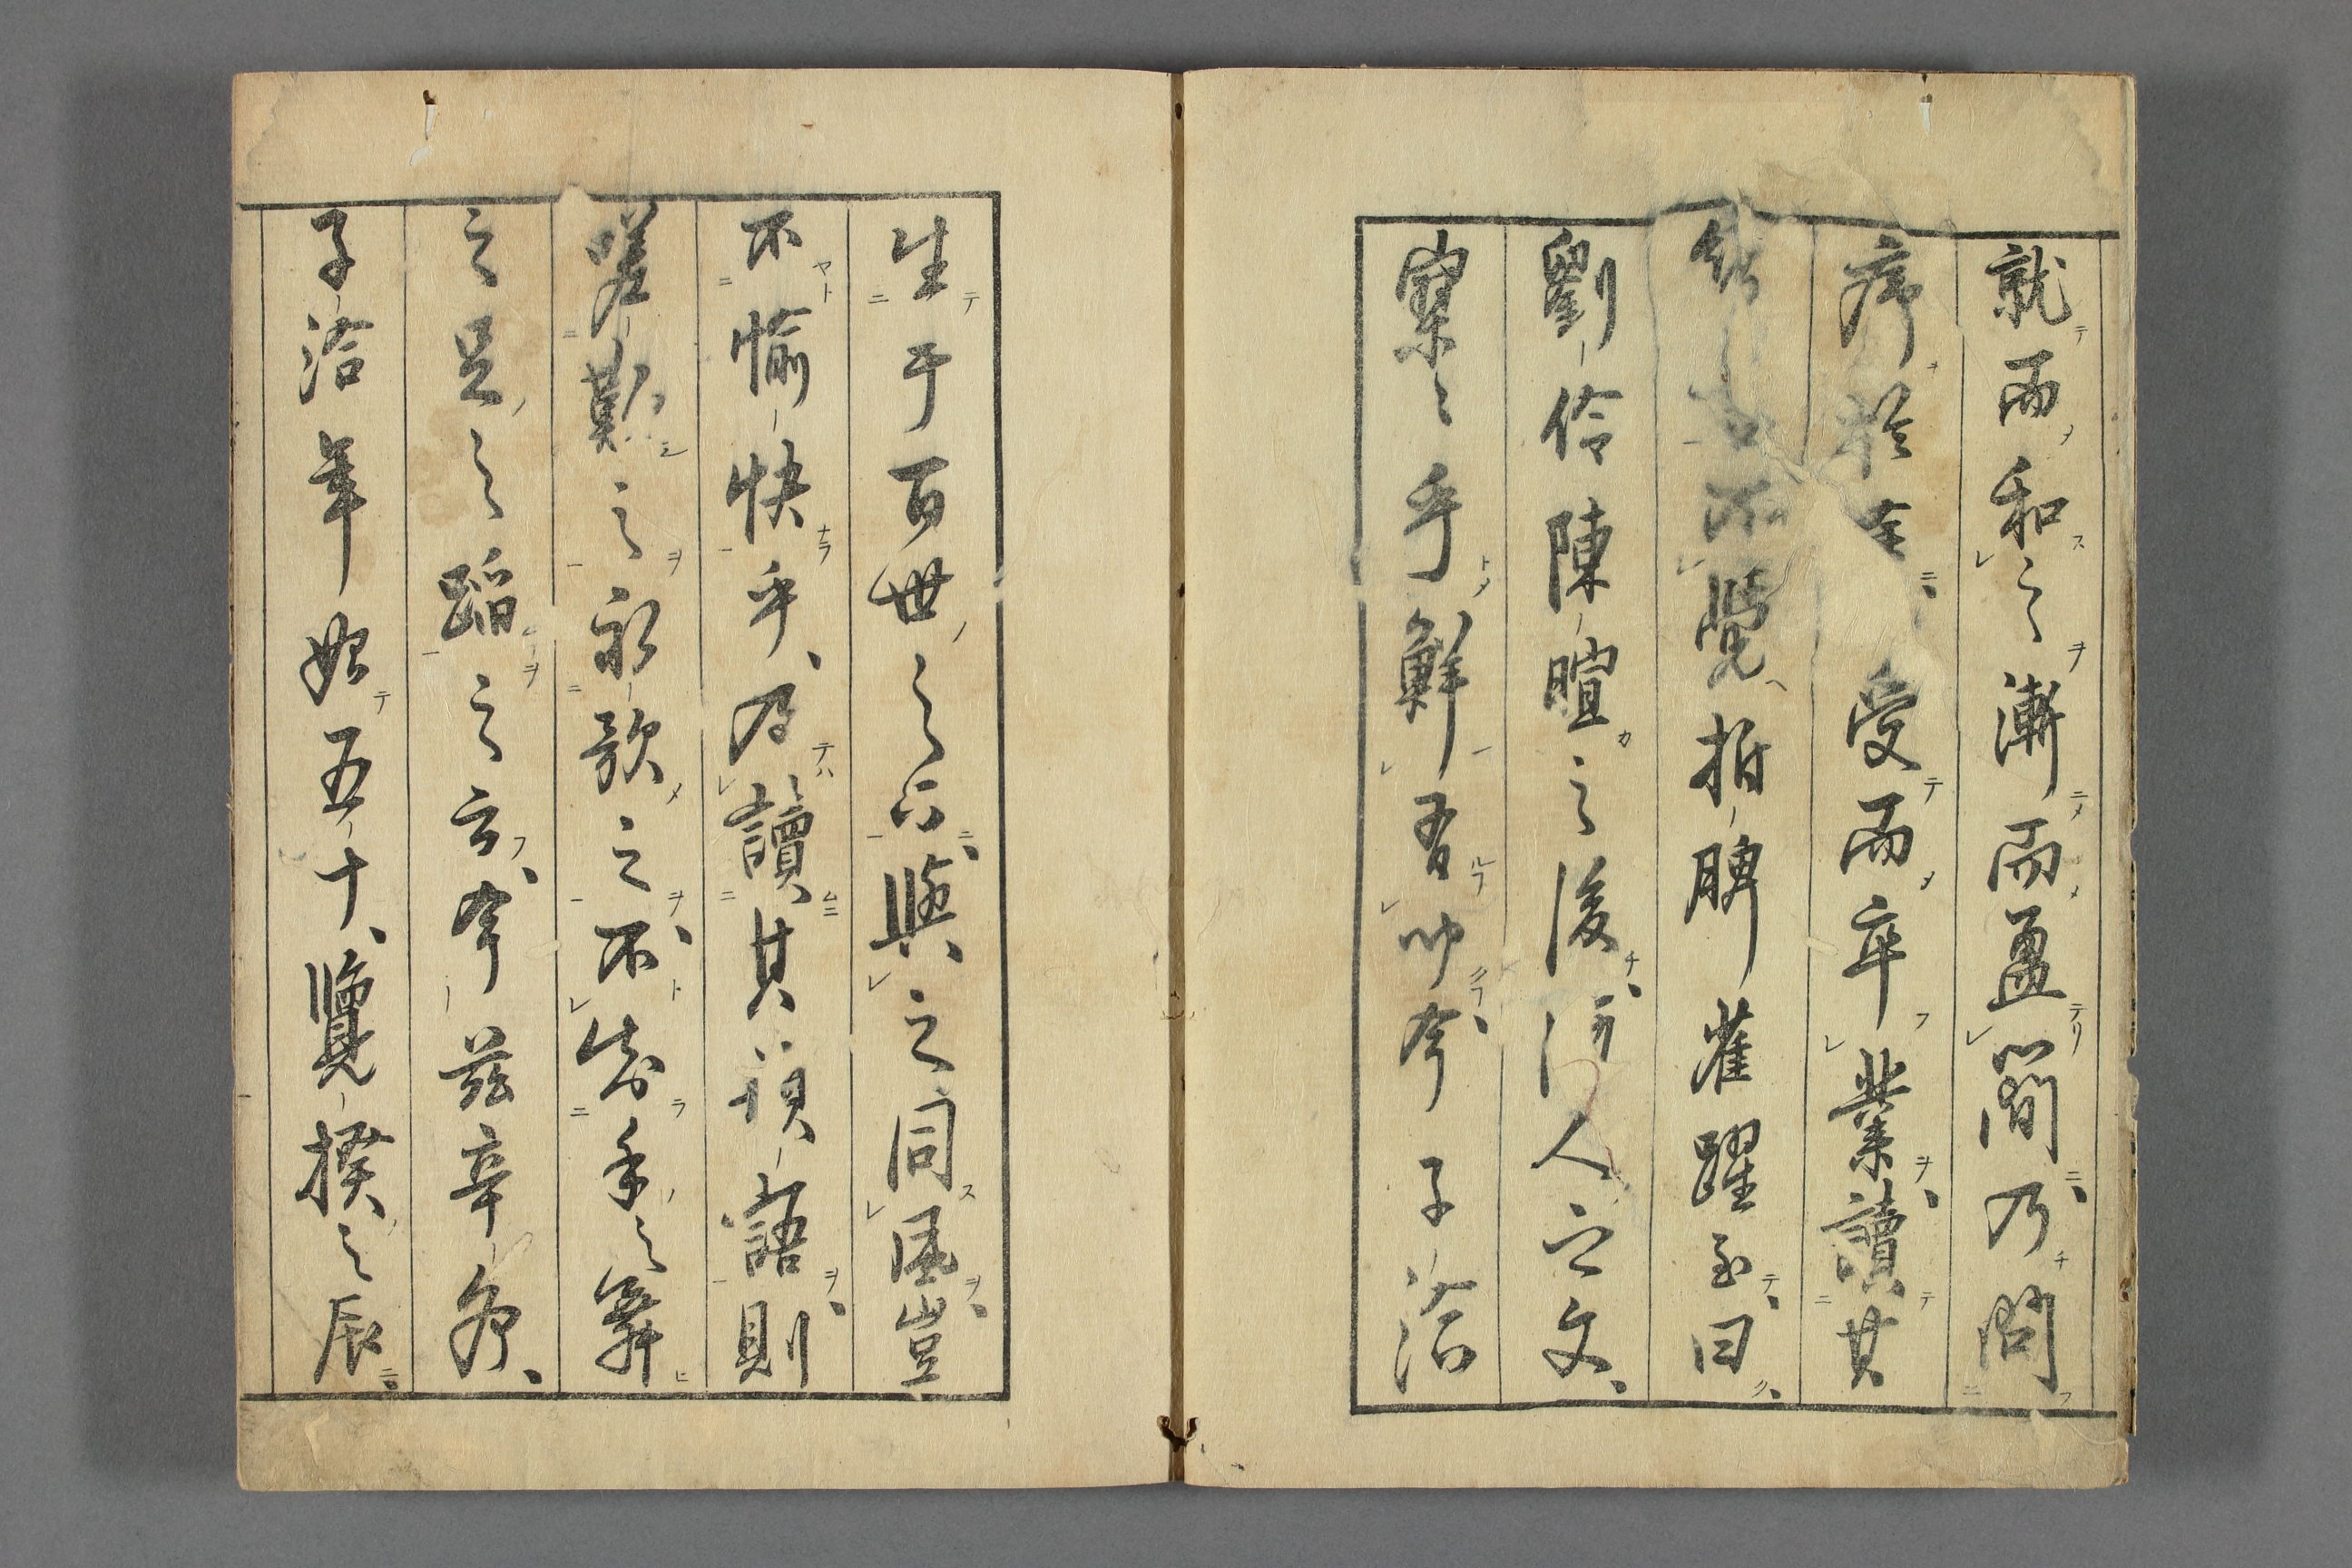 就而和之漸而盈簡乃問
序於余受而卒業讀其
不覺拍脾雀躍至曰
劉伶陳暄之後有人之文
寥々乎鮮吾聞今子洽
生于百世之下與之同風豈
不愉快乎及讀其讀其語則
嗟歎之永歌之不知手之舞
之足之蹈之云今茲辛
子洽年始五十覽揆之辰